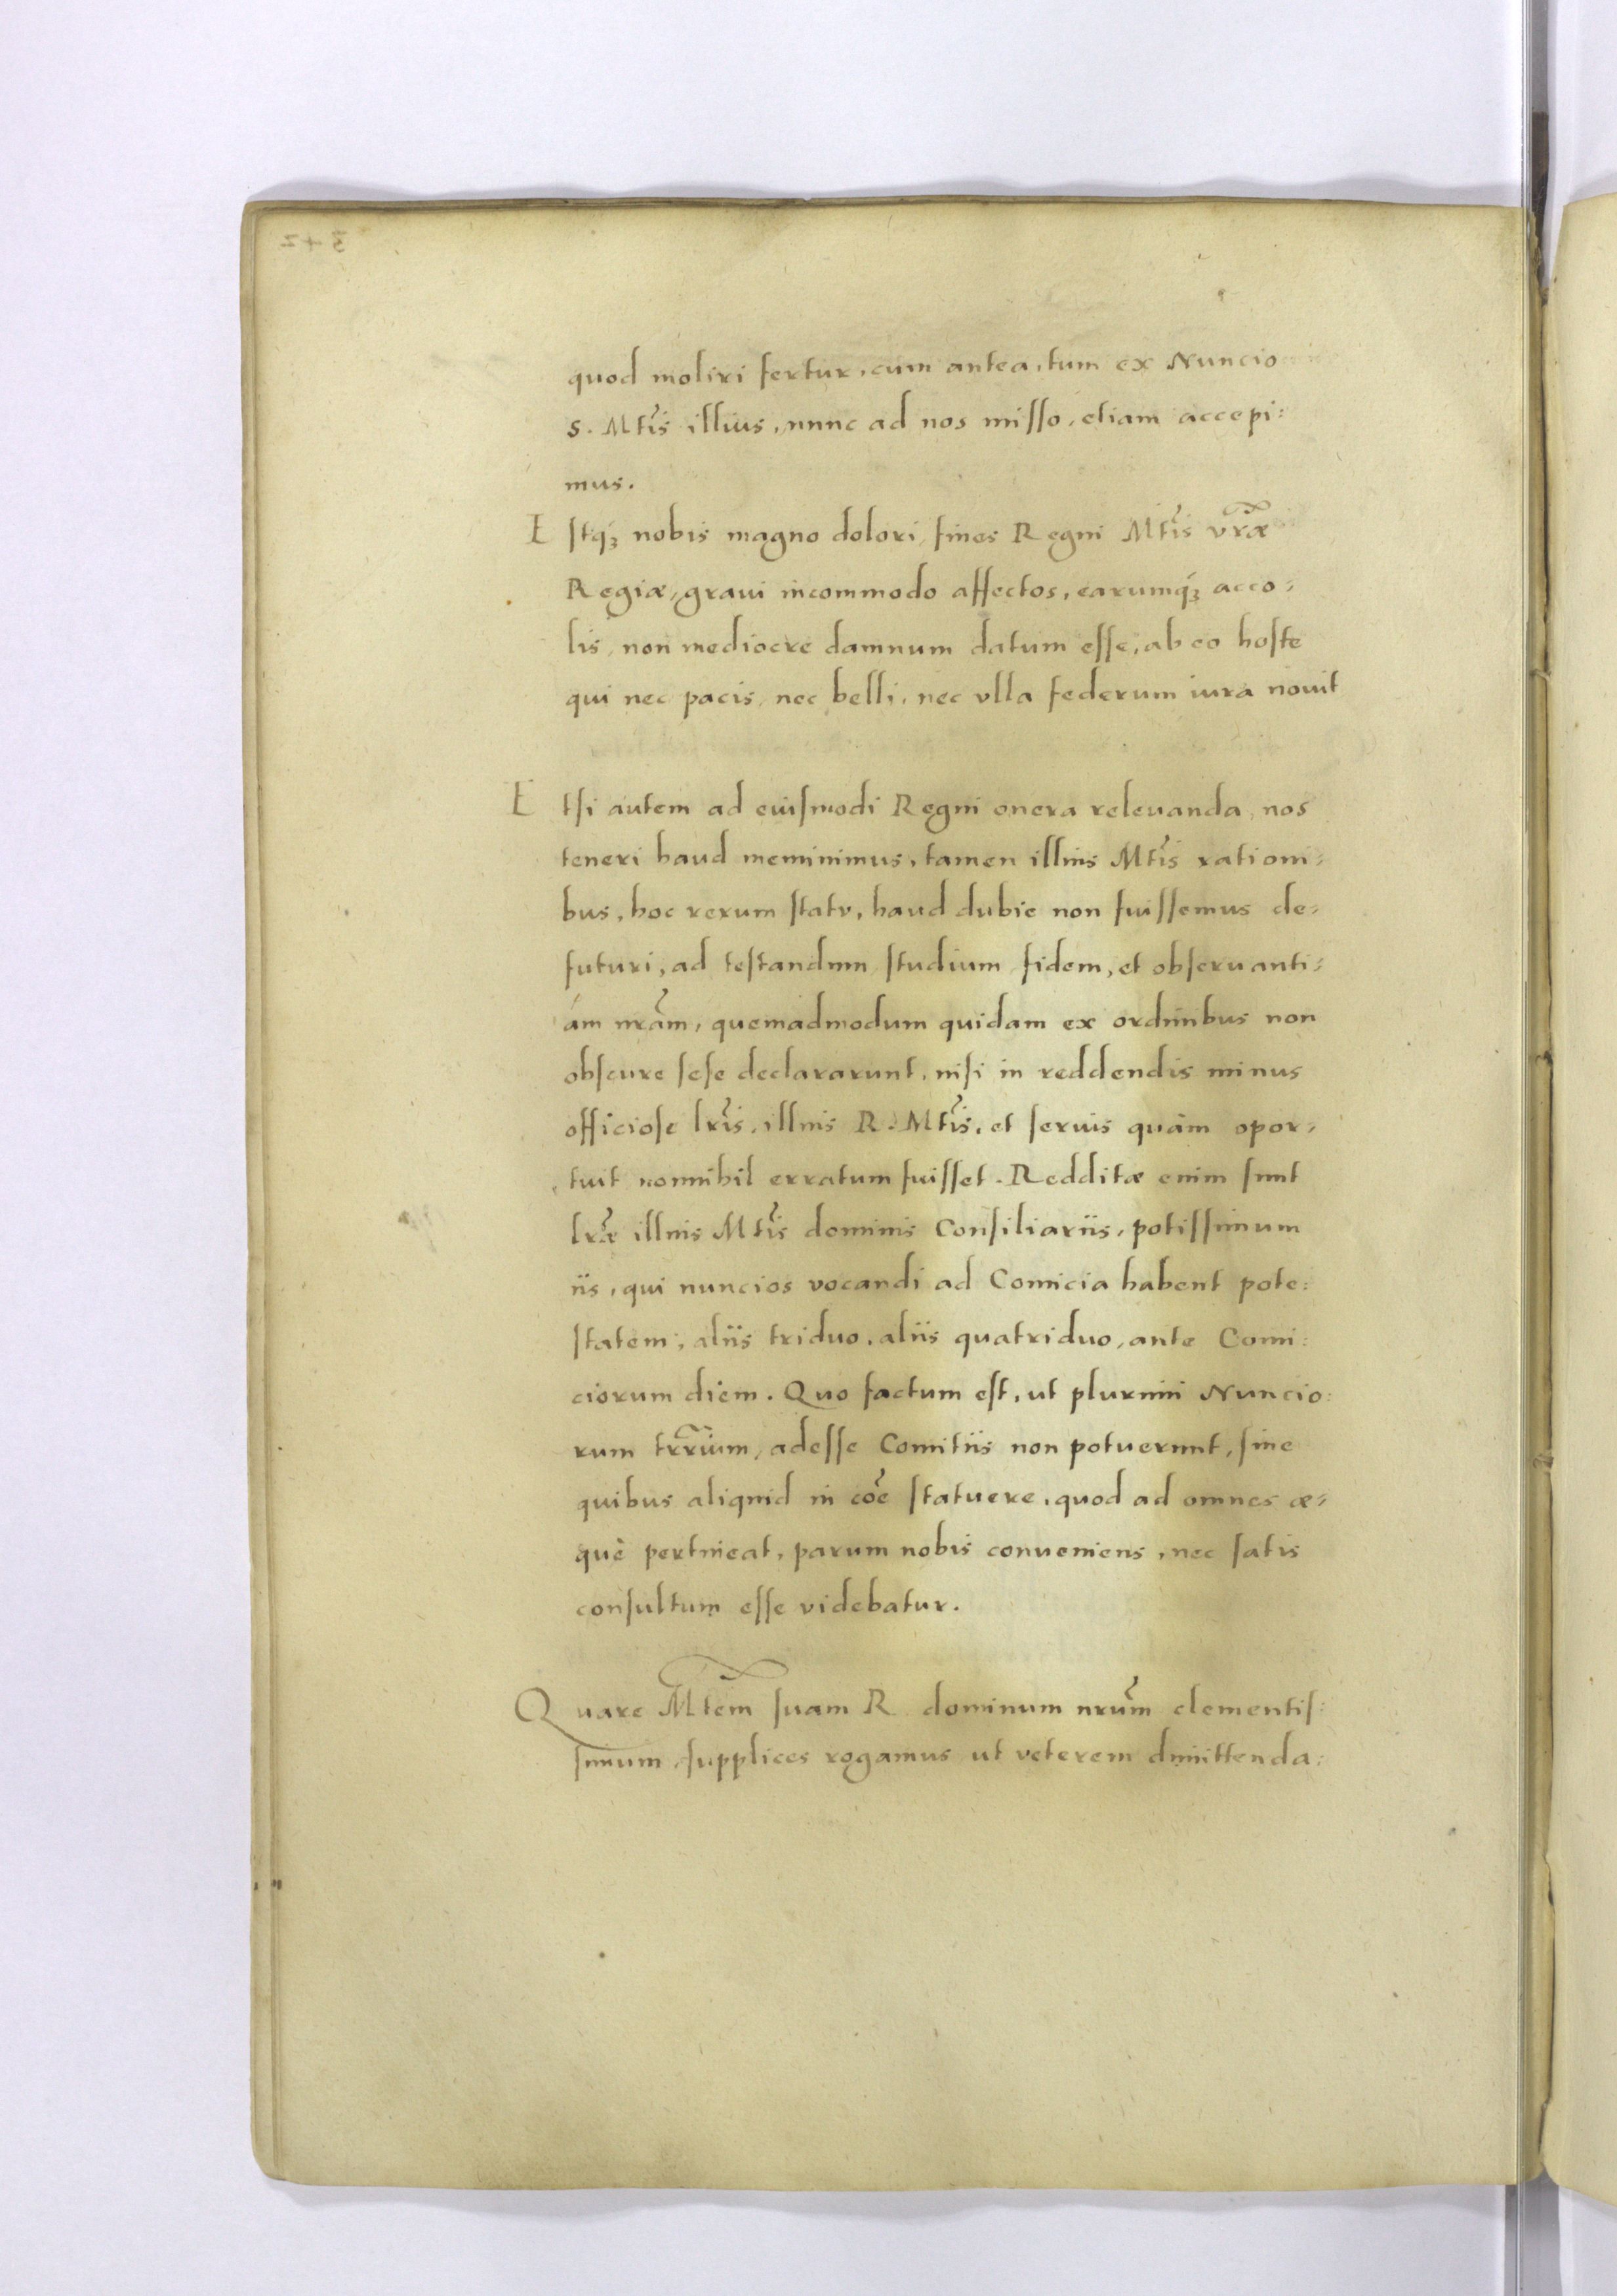 quod moliri fertur, cum antea, tum ex Nuncio
S. Mtis illius, nunc ad nos misso, etiam accepi:
mus.
Estq́ꝫ nobis magno dolori, fines Regni Mtis vr̃æ
Regiæ, graui incommodo affectos, earumq́ꝫ acco,
lis, non mediocre damnum datum esse, ab eo hoste
qui nec pacis, nec belli, nec vlla federum iura nouit
Etsi autem ad eiusmodi Regni onera releuanda, nos
teneri haud meminimus, tamen illius Mtis rationi,
bus, hoc rerum statu, haud dubie non fuissemus de,
futuri, ad testandum studium fidem, et obseruanti,
am nr̃am, quemadmodum quidam ex ordinibus non
obscure sese declararunt, nisi in reddendis minus
officiose lr̃is, illius R. Mtis, et serius quàm opor,
tuit nonnihil erratum fuisset. Redditæ enim sunt
lr̃æ illius Mtis dominis Consiliariis, potissimum
iis, qui nuncios vocandi ad Comicia habent pote:
statem, aliis triduo, aliis quatriduo, ante Comi:
ciorum diem. Quo factum est, ut plurimi Nuncio:
rum tr̃rarium, adesse Comitiis non potuerunt, sine
quibus aliquid in cõe statuere, quod ad omnes æ,
què pertineat, parum nobis conueniens, nec satis
consultum esse videbatur.
Quare Mtem suam R dominum nr̃um clementis:
simum, supplices rogamus ut veterem dimittenda: